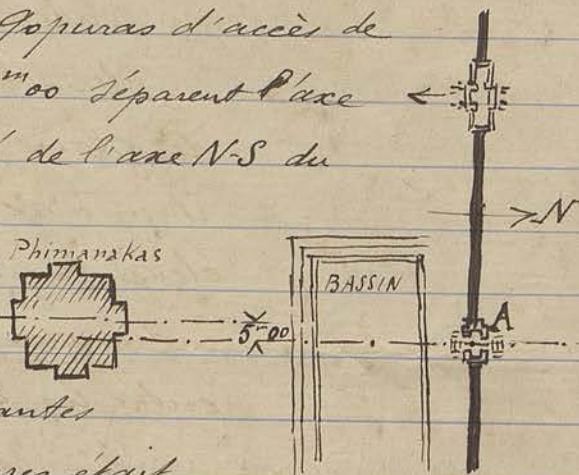 gopuras d'accès de
m00 séparent l'axe
de l'axe N-S du
N
Phimanakas
BASSIN
A
5m00
antes
était